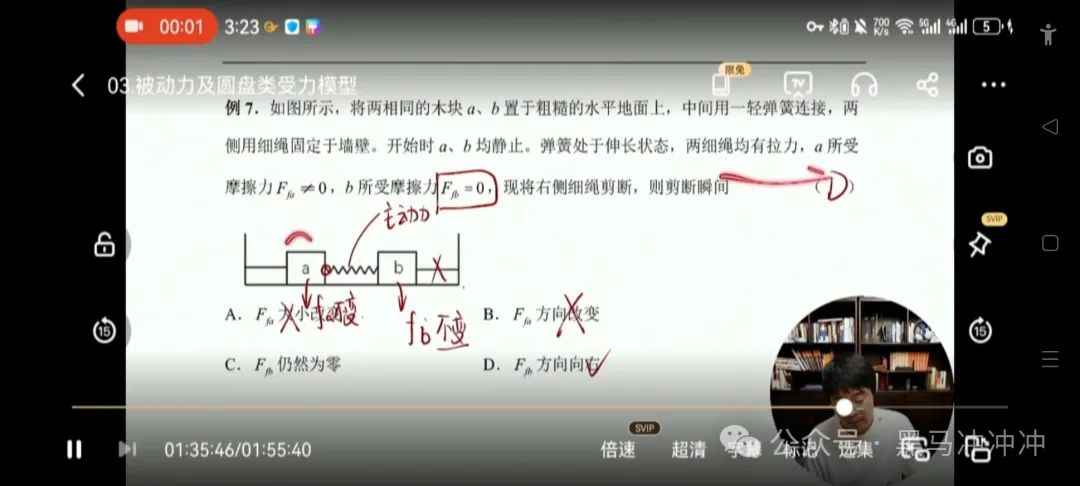 00:01 3:23 700 K/s 5G 4G 5
03.被动力及圆盘类受力模型 限免 TV
例 7. 如图所示，将两相同的木块 a、b 置于粗糙的水平地面上，中间用一轻弹簧连接，两
侧用细绳固定于墙壁。开始时 a、b 均静止。弹簧处于伸长状态，两细绳均有拉力，a 所受
摩擦力 F_fa ≠ 0，b 所受摩擦力 F_fb = 0，现将右侧细绳剪断，则剪断瞬间 （D）
主动力
SVIP
a b
A. F_fa 大小改变 B. F_fa 方向改变
fa不变
fb不变
C. F_fb 仍然为零 D. F_fb 方向向右
15 15
SVIP
01:35:46/01:55:40 倍速 超清 字幕 标记 选集
公众号·黑马冲冲冲